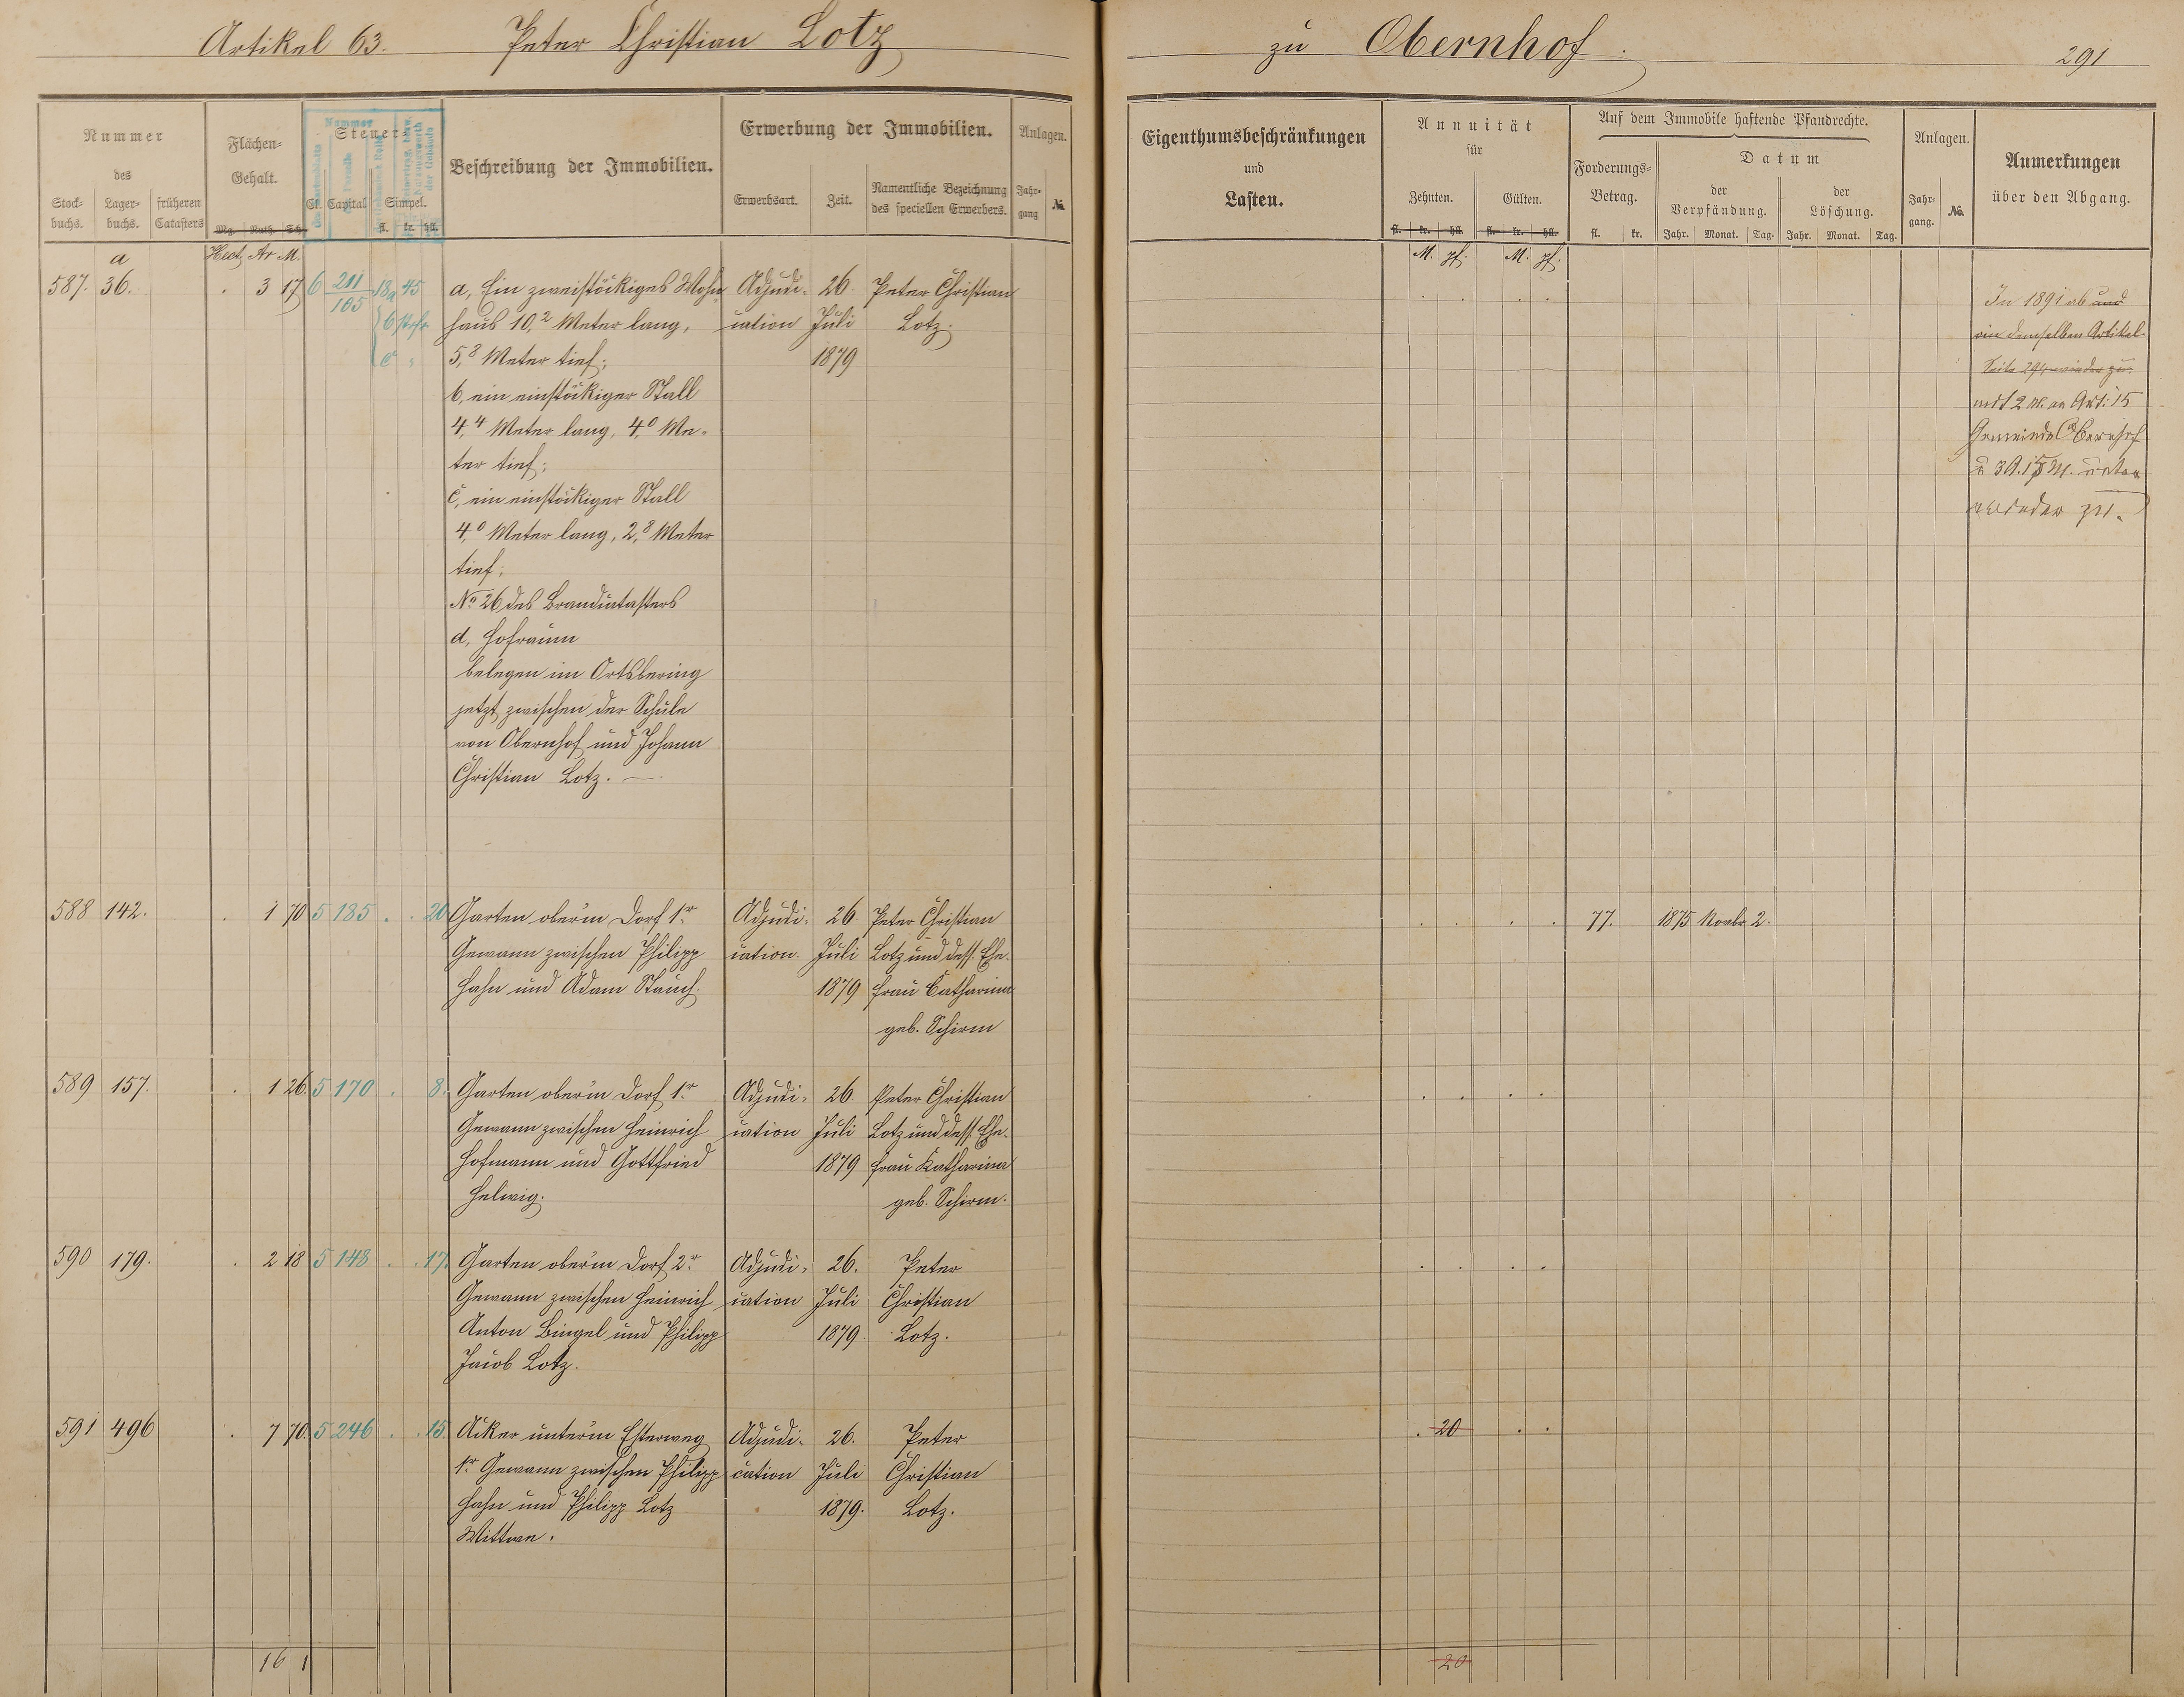 Artikel 63. Peter Christian Lotz
zu Obernhof.
291
Nummer
des
Stock-
buchs.
Lager-
buchs.
früheren
Catasters
Flächen-
Gehalt.
Mg. Ruth. Sch.
Nummer
Steuer-
Cl. Capital Simpel.
fl. kr. hll.
Beschreibung der Immobilien.
Erwerbung der Immobilien.
Erwerbsart. Zeit.
Namentliche Bezeichnung
des speciellen Erwerbers.
Anlagen.
Jahr-
gang
No.
Hect. Ar M.
a
587. 36. . 3 17 6 211 13 a 45
105
b stfr.
c "
a, Ein zweistöckiges Wohn
haus 10,2 Meter lang,
5,8 Meter tief;
b, ein einstöckiger Stall
4,4 Meter lang, 4,0 Me-
ter tief;
c, ein einstöckiger Stall
4,0 Meter lang, 2,8 Meter
tief;
No 26 des Brandcatasters
d, Hofraum
belegen im Ortsbering
jetzt zwischen der Schule
von Obernhof und Johann
Christian Lotz. —
Adjudi-
cation
26
Juli
1879
Peter Christian
Lotz.
588 142. . 1 70 5 185 . . 20
Garten ober'm Dorf 1r
Gewann zwischen Philipp
Hahn und Adam Stauch.
Adjudi-
cation.
26.
Juli
1879
Peter Christian
Lotz und dess. Ehe-
frau Catharina
geb. Schirm
589 157. . 1 26. 5 170 . 8.
Garten ober'm Dorf 1r
Gewann zwischen Heinrich
Hofmann und Gottfried
Helwig.
Adjudi-
cation
26.
Juli
1879
Peter Christian
Lotz und dess. Ehe-
frau Katharina
geb. Schirm.
590 179. . 2 18 5 148 . . 17.
Garten ober'm Dorf 2r
Gewann zwischen Heinrich
Anton Bingel und Philipp
Jacob Lotz.
Adjudi-
cation
26.
Juli
1879.
Peter
Christian
Lotz.
591 496 . 7 70. 5 246 . . 15.
Acker unter'm Esterweg
1r Gewann zwischen Philipp
Hahn und Philipp Lotz
Wittwe.
Adjudi-
cation
26.
Juli
1879.
Peter
Christian
Lotz.
16 1
Eigenthumsbeschränkungen
und
Lasten.
Annuität
für
Zehnten. Gülten.
fl. kr. hll. fl. kr. hll.
M. pf. M. pf.
Auf dem Immobile haftende Pfandrechte.
Forderungs-
Betrag.
fl. kr.
Datum
der
Verpfändung.
der
Löschung.
Jahr. Monat. Tag. Jahr. Monat. Tag.
Anlagen.
Jahr-
gang.
No.
Anmerkungen
über den Abgang.
In 1891 ab und
demselben Artikel
Seite 294 wieder zu.
mit 2 M. an Art: 15
Gemeinde Obernhof
u 3 A. 15 M. unten
wieder zu.
77. 1875 Novbr 2.
. 20 . .
20